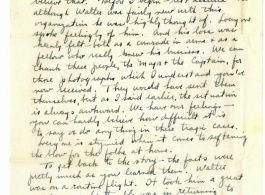 believe that. Major
although Walter was fairly new with this
organization he was highly thought of. Everyone
spoke feelingly of him. And his loss was
keenly felt - both as a comrade in arms + as a
fellow who really knew his business. We can
thank these people, the Major + the Captain, for
those photographs which I understand you've
now received. They would have sent them
themselves, but as I said earlier, the situation
is always awkward. We have our feelings -
you can hardly believe how difficult it is
to say or do any thing in these tragic cases.
Everyone is stymied when it comes to softening
the blow for the folks at home.
To get back to the story - the facts were
pretty much as you learned them. Walter
was on a routine flight. It took him a great
was in returning to